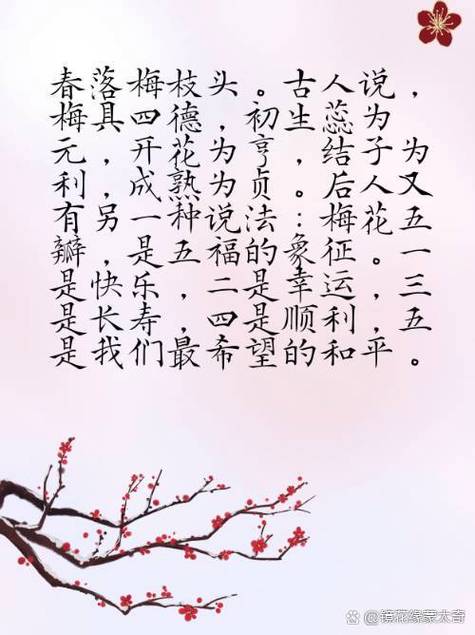 春落梅枝头。古人说，
梅具四德，初生蕊为
元，开花为亨，结子为
利，成熟为贞。后人又
有另一种说法：梅花五
瓣，是五福的象征。一
是快乐，二是幸运，三
是长寿，四是顺利，五
是我们最希望的和平。
@镜花缘蒙太奇